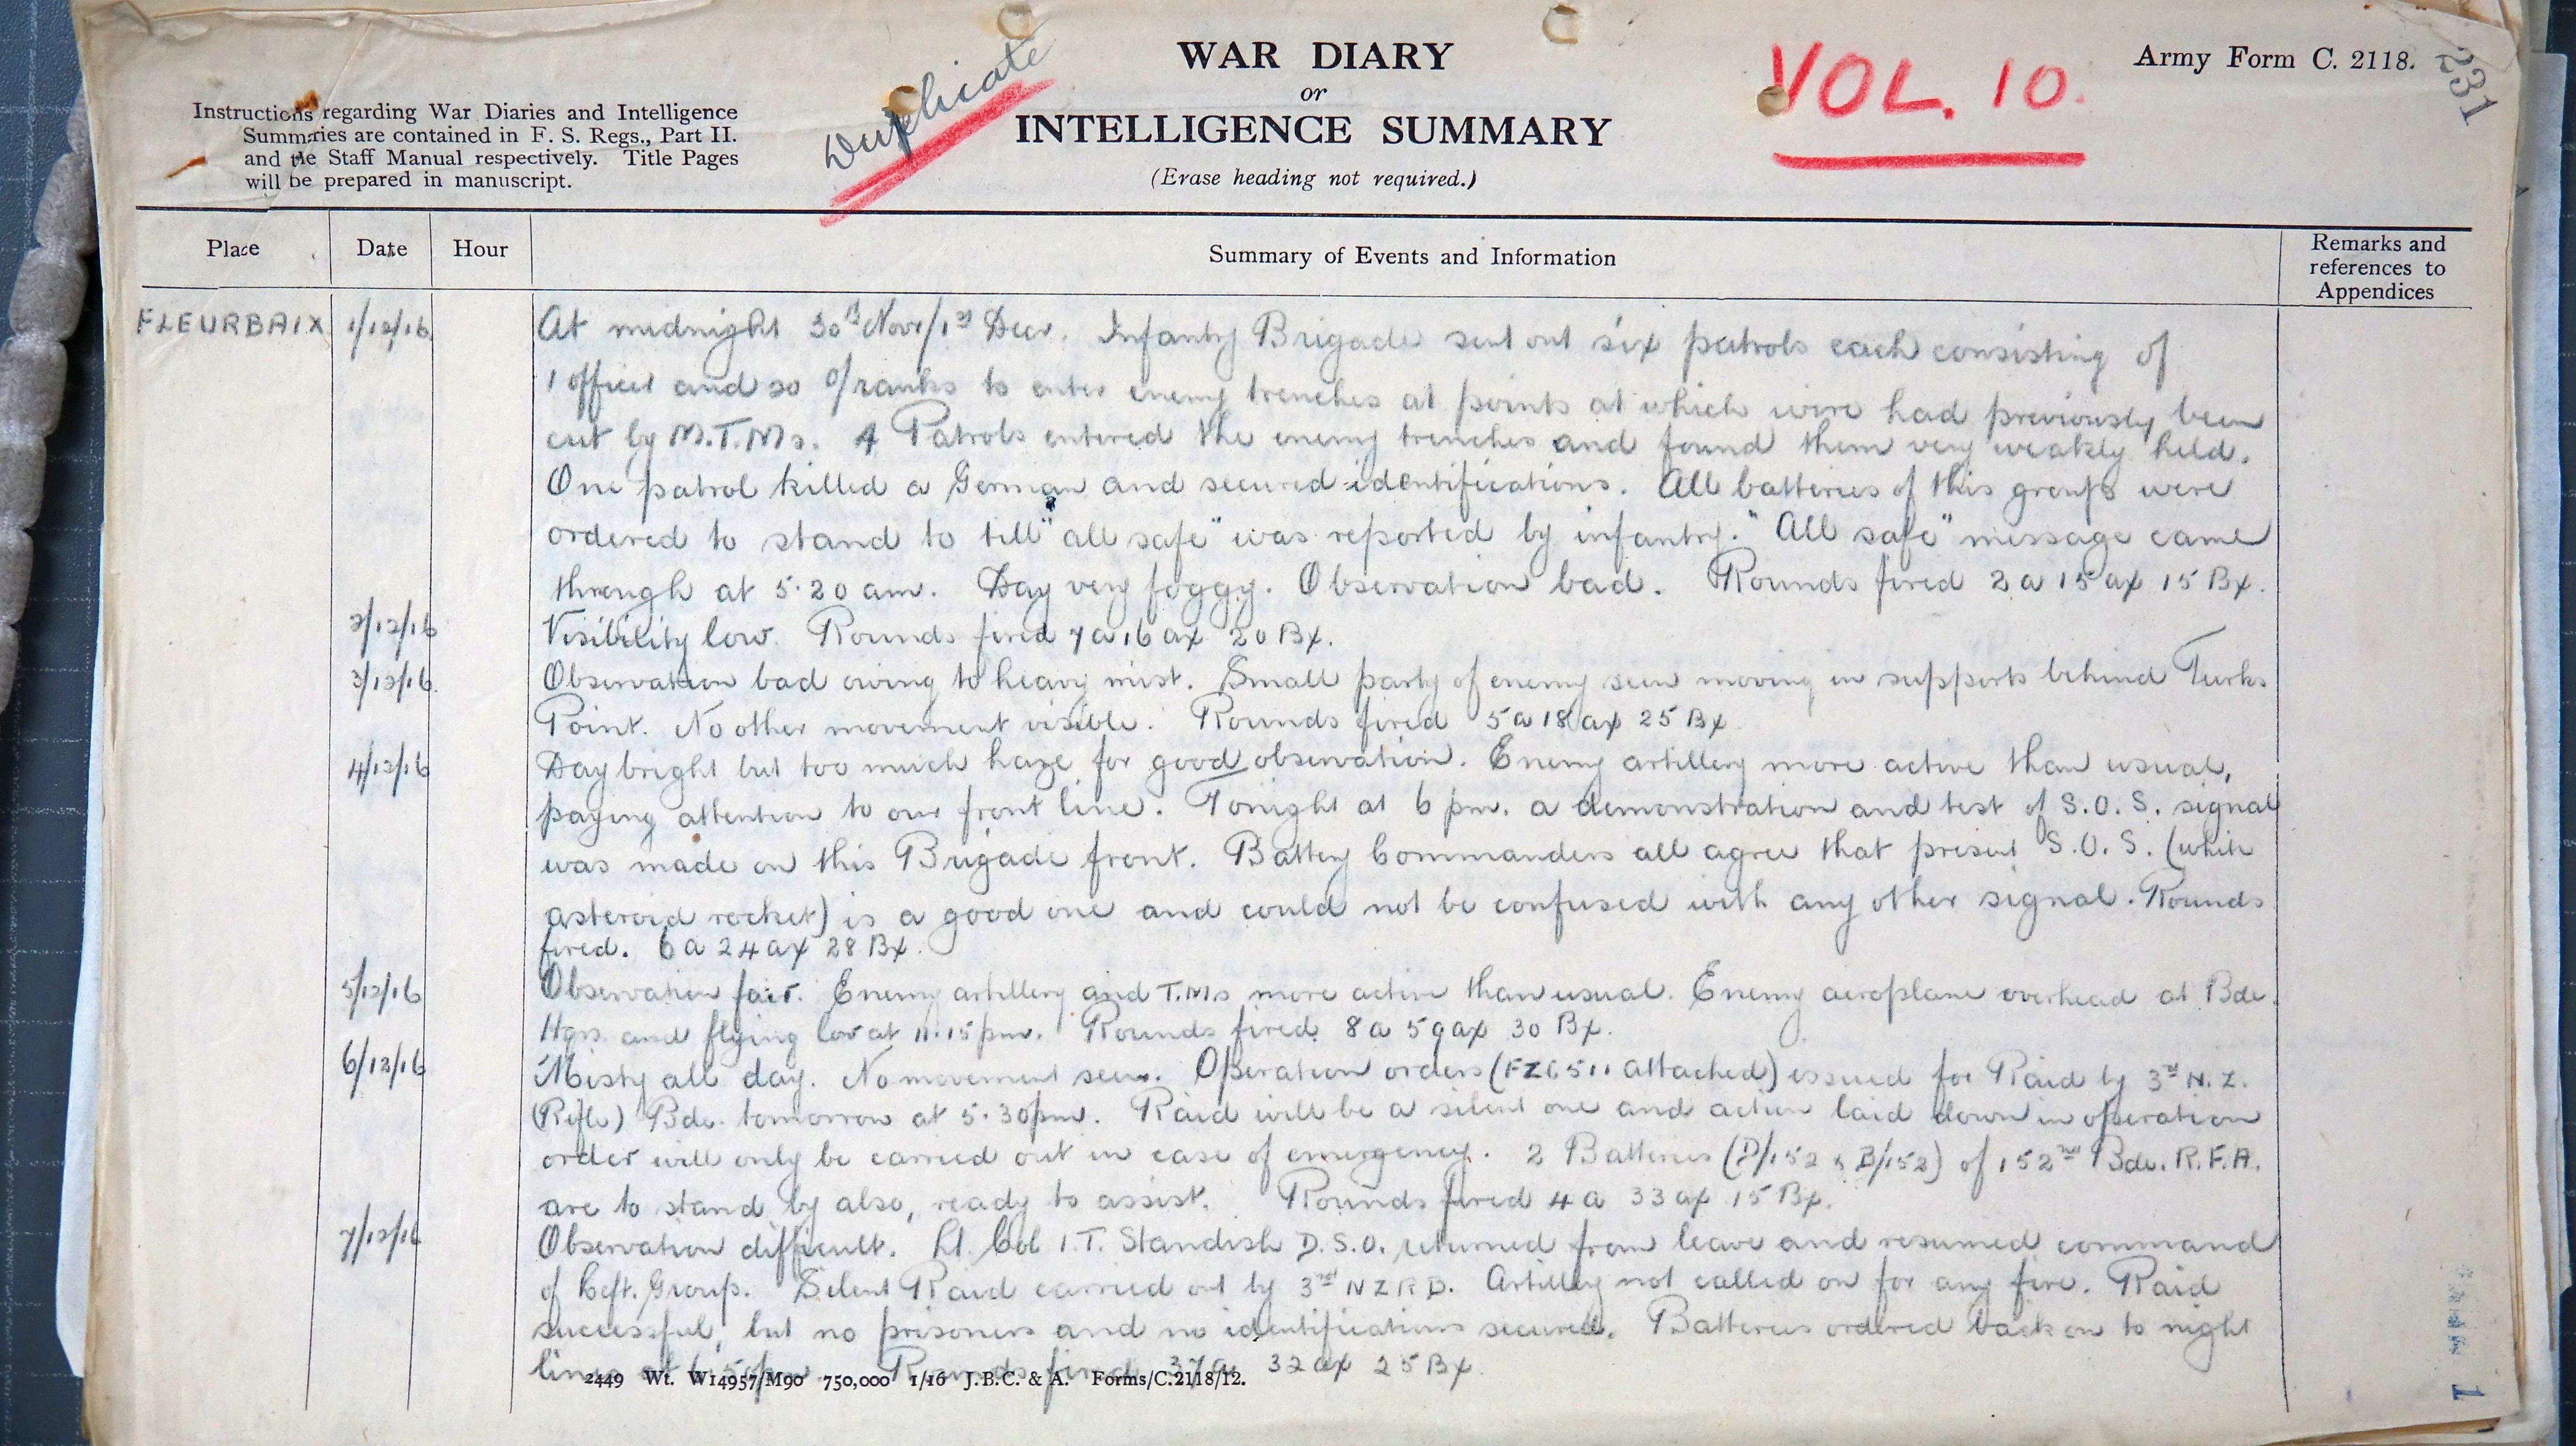 WAR DIARY
or
INTELLIGENCE SUMMARY
(Erase heading not required.)
Army Form C. 2118.
231
VOL. 10.
Duplicate
Instructions regarding War Diaries and Intelligence
Summaries are contained in F. S. Regs., Part II.
and the Staff Manual respectively. Title Pages
will be prepared in manuscript.
Place Date Hour Summary of Events and Information Remarks and references to Appendices
FLEURBAIX 1/12/16 At midnight 30th Nov/1st Decr. Infantry Brigade sent out six patrols each consisting of
1 officer and 20 o/ranks to enter enemy trenches at points at which wire had previously been
cut by M.T.Ms. 4 Patrols entered the enemy trenches and found them very weakly held.
One patrol killed a German and secured identifications. All batteries of this group were
ordered to stand to till "all safe" was reported by infantry. "All safe" message came
through at 5.20 am. Day very foggy. Observation bad. Rounds fired 2a 15ax 15 Bx.
2/12/16 Visibility low. Rounds fired 7a 16ax 20 Bx.
3/12/16 Observation bad owing to heavy mist. Small party of enemy seen moving in supports behind Turks
Point. No other movement visible. Rounds fired 5a 18ax 25 Bx
4/12/16 Day bright but too much haze for good observation. Enemy artillery more active than usual,
paying attention to our front line. Tonight at 6 pm. a demonstration and test of S.O.S. signal
was made on this Brigade front. Battery Commanders all agree that present S.O.S. (white
asteroid rocket) is a good one and could not be confused with any other signal. Rounds
fired. 6a 24ax 28 Bx.
5/12/16 Observation fair. Enemy artillery and T.Ms more active than usual. Enemy aeroplane overhead at Bde.
Hqrs. and flying low at 11.15 pm. Rounds fired 8a 59ax 30 Bx.
6/12/16 Misty all day. No movement seen. Operation orders (FZC511 attached) issued for Raid by 3rd N.Z.
(Rifle) Bde. tomorrow at 5.30pm. Raid will be a silent one and action laid down in operation
order will only be carried out in case of emergency. 2 Batteries (D/152 & B/152) of 152nd Bde. R.F.A.
are to stand by also, ready to assist. Rounds fired 4a 33ax 15 Bx.
7/12/16 Observation difficult. Lt. Col I.T. Standish D.S.O. returned from leave and resumed command
of Left. Group. Silent Raid carried out by 3rd NZRB. Artillery not called on for any fire. Raid
successful, but no prisoners and no identifications secured. Batteries ordered back on to night
lines at Rounds fired 37a 32ax 25 Bx.
2449 Wt. W14957/M90 750,000 1/16 J.B.C. & A. Forms/C.2118/12.
1